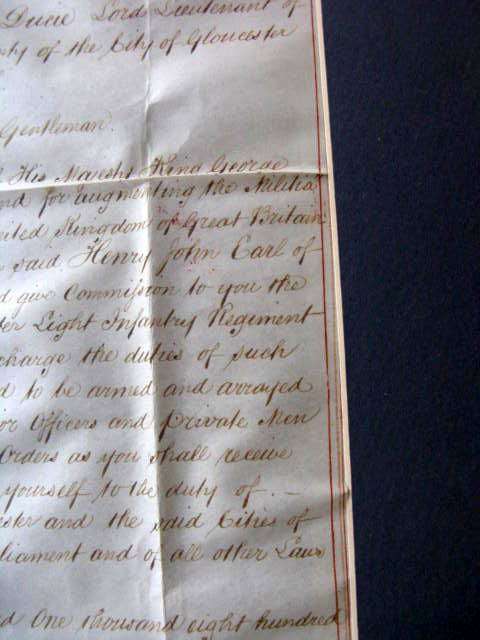 Ducie Lord Lieutenant of
nty of the City of Gloucester
Gentleman.
His Majesty King George
nd for augmenting the Militia
nited Kingdom of Great Britain
said Henry John Earl of
d give Commission to you the
ter Light Infantry Regiment
charge the duties of such
d to be armed and arrayed
or Officers and private Men
Orders as you shall receive
yourself to the duty of. —
ester and the said Cities of
liament and of all other Laws
d One thousand eight hundred